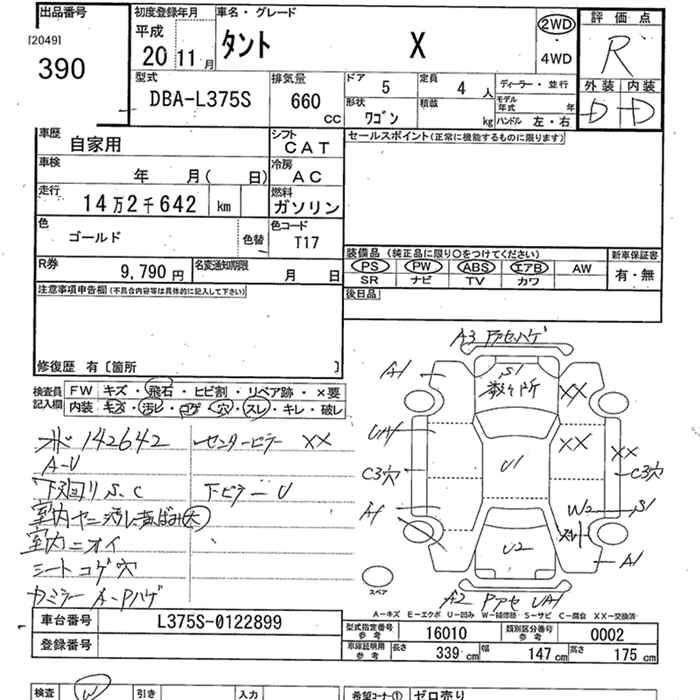 出品番号
[2049]
390
初度登録年月
平成
20 11月
車名・グレード
タント X
2WD
4WD
評価点
R
外装 内装
D D
型式
DBA-L375S
排気量
660 CC
ドア
5
定員
4 人
形状
ワゴン
積載
kg
ディーラー・並行
モデル年式 年
ハンドル 左・右
車歴
自家用
シフト
CAT
車検
年 月( 日)
冷房
AC
走行
14万2千642 km
燃料
ガソリン
色
ゴールド
色替
色コード
T17
R券
9,790円
名変通知期限
月 日
セールスポイント(正常に機能するものに限ります)
装備品 (純正品に限り○をつけてください)
PS PW ABS エアB AW
SR ナビ TV カワ
新車保証書
有・無
後日品
注意事項申告欄(不具合内容等は具体的に記入して下さい)
修復歴 有 [箇所 ]
検査員記入欄
FW キズ・飛石・ヒビ割・リペア跡・×要
内装 キズ・汚レ・コゲ・穴・スレ・キレ・破レ
メボ 142642
センターピラー XX
A-U
下回リ S.C
室内ヤニ汚レ黄ばみ大
室内ニオイ
シートコゲ穴
A1
S1
数ヶ所
XX
XX
XX
UA1
U1
C3穴
C3穴
A1
W2
S1
U2
A1
A2
UA1
スペア
A-キズ E-エクボ U-凹み W-補修跡 S-サビ C-腐食 XX-交換済
車台番号
L375S-0122899
登録番号
型式指定番号
参考
16010
類別区分番号
参考
0002
車庫証明用
参考
長さ 339 cm
幅 147 cm
高さ 175 cm
検査 W
引き
入力
希望コーナー①
ゼロ売り